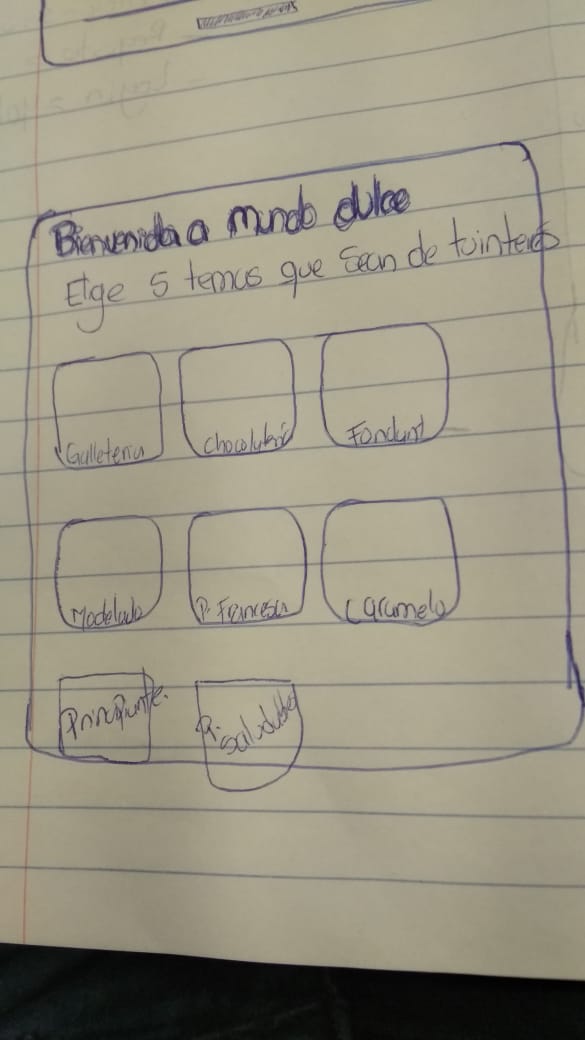 Bienvenida a mundo dulce
Elige 5 temas que sean de tu interés
Galleteria
Chocolateria
Fondant
Modelado
P. Francesa
Caramelo
Principiante.
P. Saludable